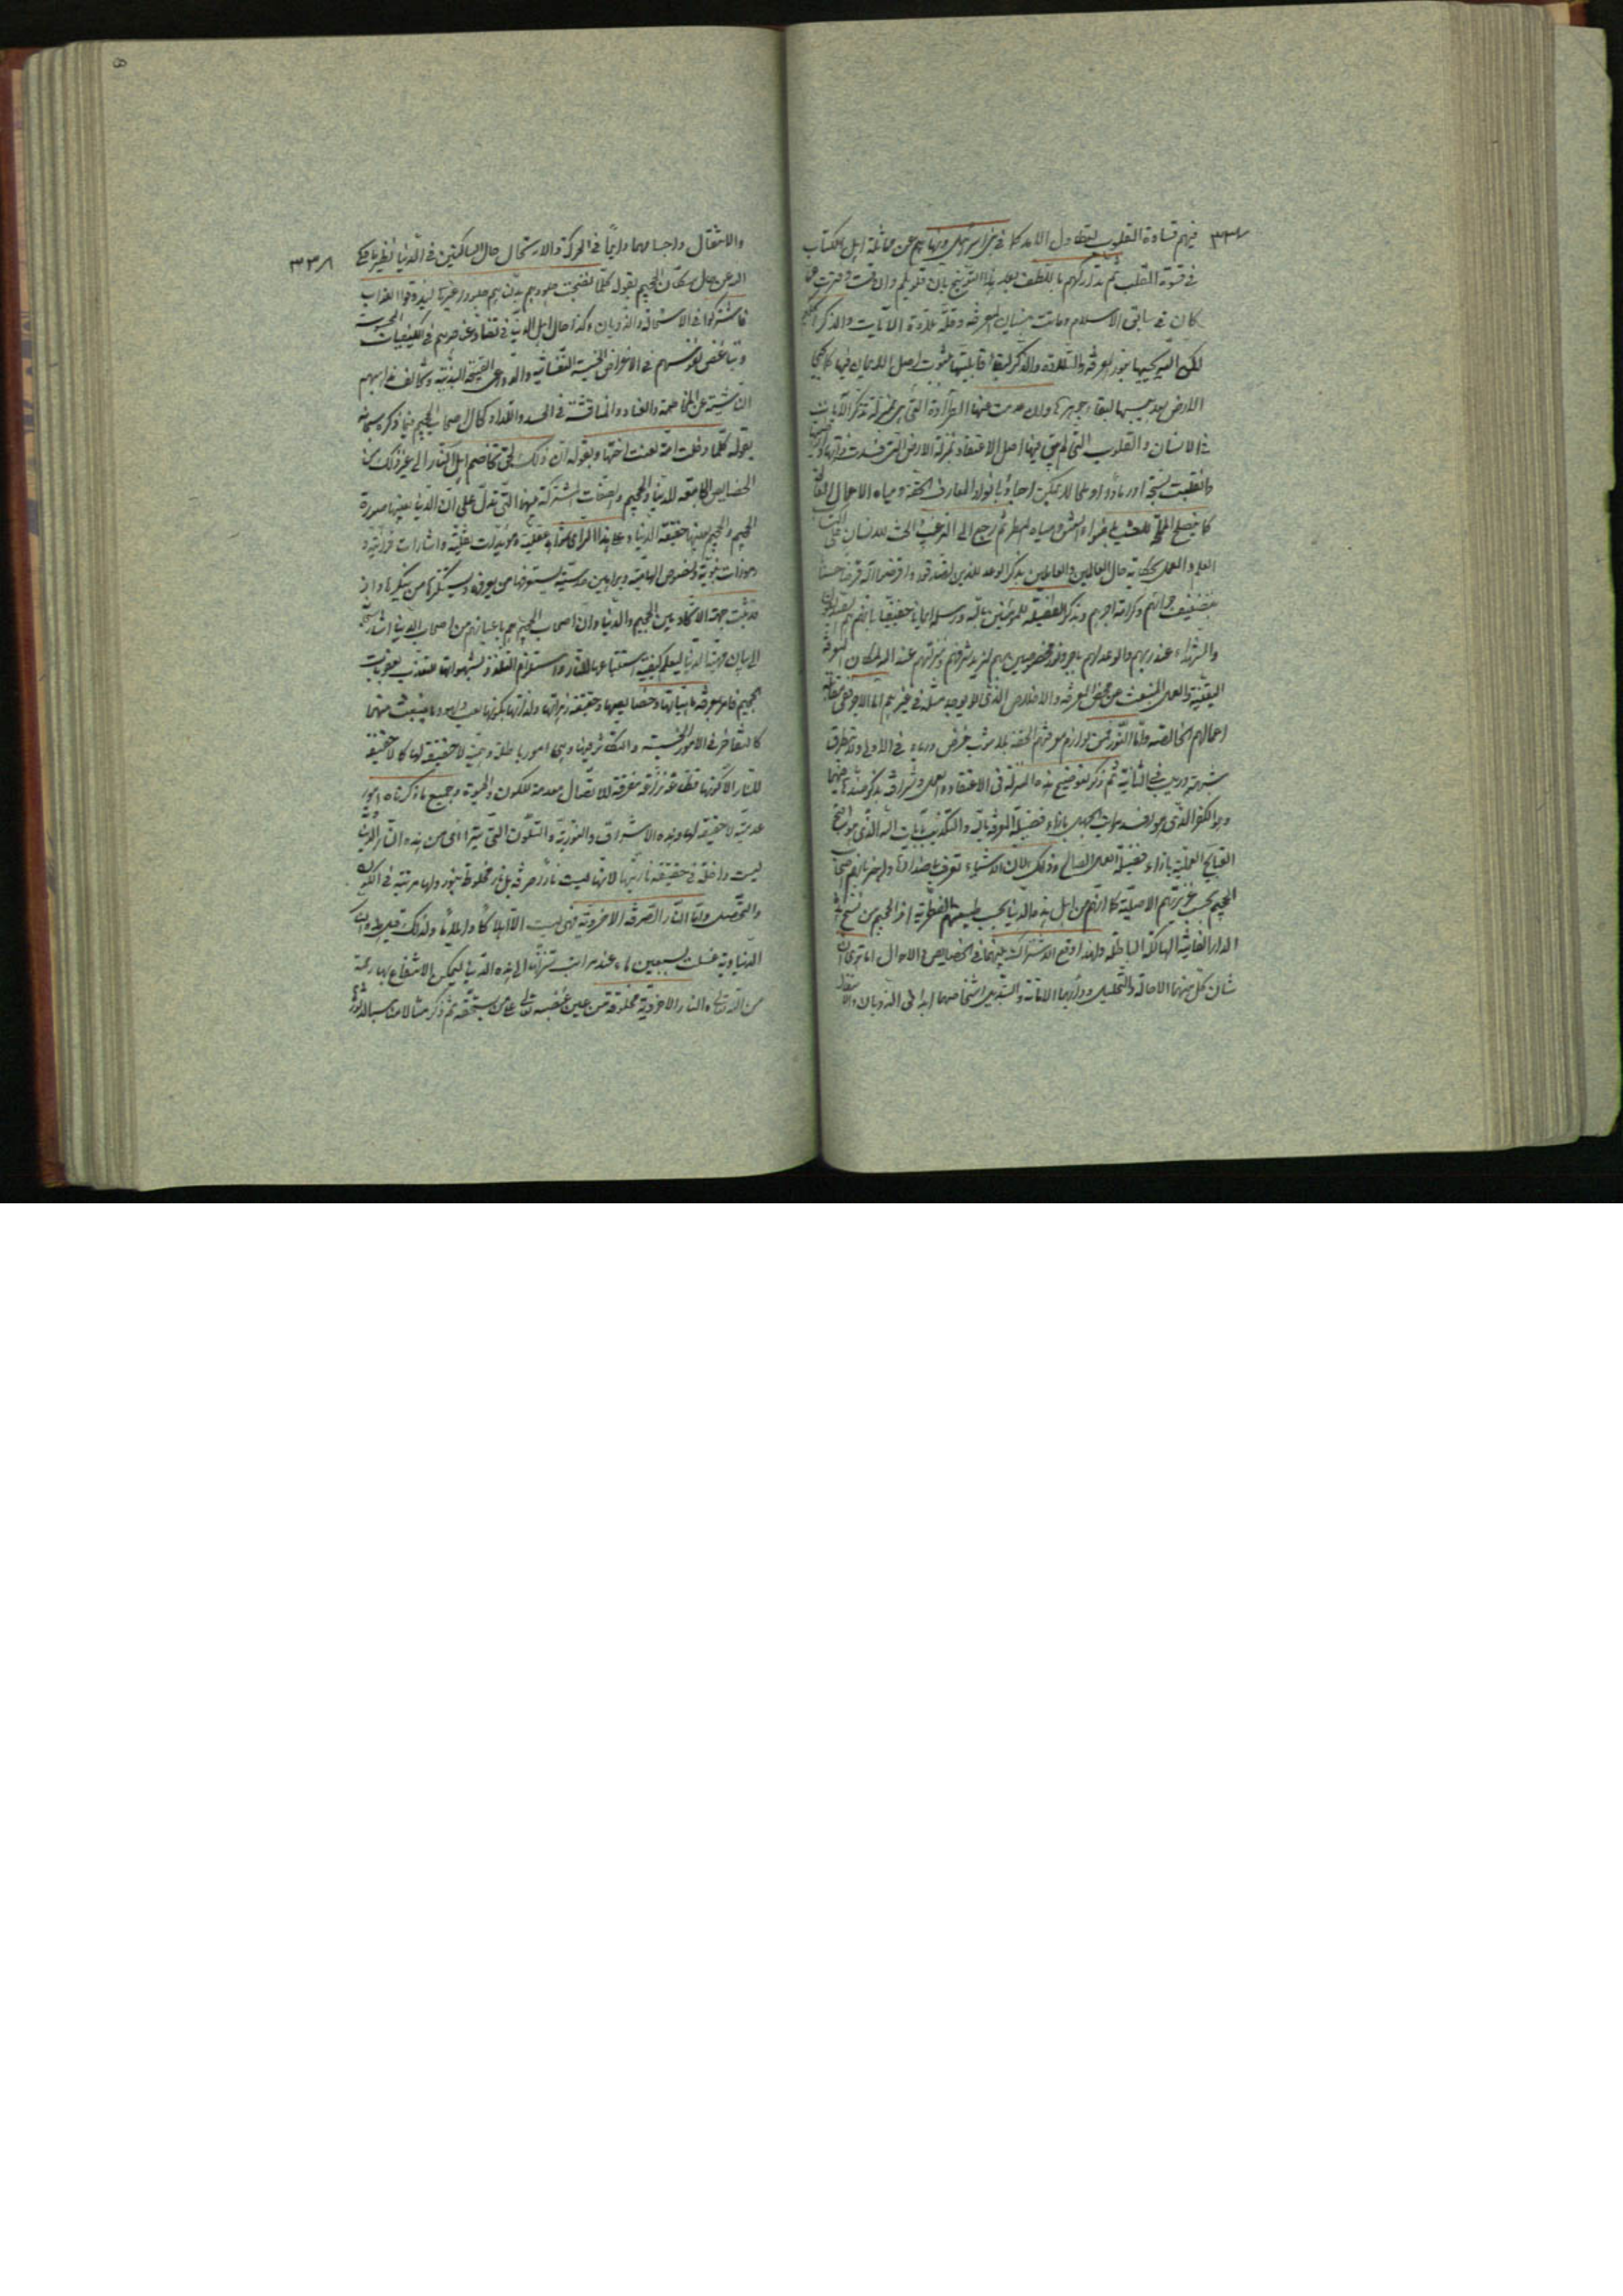 ٣٣٧
فيهم قساوة القلوب لتطاول الامد كما في بني اسرائيل ونهاهم عن مماثلة اهل الكتاب
في قسوة القلب ثم تداركهم باللطف بعد هذا التوبيخ بان قلوبكم وان قست
كان في سابق الاسلام وماتت بنسيان المعرفة وقلة تلاوة الآيات والذكر
لكن الله يحييها بنور المعرفة والتلاوة والذكر لبقاء قابليتها بثبوت اصل الايمان فيها كما يحيي
الارض بعد يبسها لبقاء جوهرها وان عدمت عنها الطراوة التي هي بمنزلة تذكر الآيات
في الانسان والقلوب التي لم يبق فيها اصل الاعتقاد بمنزلة الارض التي فسدت ذواتها
فانقلبت سبخة او رمادا او ملحا لا يمكن احياؤها بانوار المعارف الحقة ومياه الاعمال
كما يصلح المحل بضوء الشمس ومياه المطر ثم رجع الى الترغيب والحث للانسان على
العلم والعمل بحكاية حال العالمين والعاملين بذكر الوعد للذين تصدقوا واقرضوا الله قرضا حسنا
بتضعيف حسناتهم وكرامة اجرهم وبذكر الفضيلة للمؤمنين بالله ورسله ايمانا حقيقيا بانهم هم الصديقون
والشهداء عند ربهم والوعد لهم باجر ونور مخصوصين بهم لمزيد شرفهم ومنزلتهم عند الله لمكان المعرفة
اليقينية والعمل المنبعث عن محض المعرفة والاخلاص الذي لا يوجد مثله في غيرهم اما الاجر ففي مقابلة
اعمالهم الخالصة واما النور فمن لوازم معرفتهم الحقة بلا شوب غرض ورياء في الاولى ولا تطرق
شبهة وريب في الثانية ثم ذكر لتوضيح هذه المنزلة في الاعتقاد والعمل وشرافته بذكر ضدهما
وهو الكفر الذي هو افسد مراتب الجهل بازاء فضيلة المعرفة بالله والتكذيب بآيات الله الذي هو اقبح
القبايح العملية بازاء فضيلة العمل الصالح وذلك لان الاشياء تعرف باضدادها واخبر بانهم اصحاب
الجحيم بحسب غريزتهم الاصلية كما انهم من اهل هذه الدنيا بحسب طبيعتهم الفطرية اذ الجحيم من سنخ هذه
الدار الفانية الهالكة الباطلة ولهذا وقع الاشتراك بينهما في الخصايص والاحوال اما ترى ان
شأن كل منهما الاحالة والتحليل ودأبهما الاماتة والتبديل اشخاصهما ابدا في الذوبان والانتقال
٣٣٨
والانتقال واجسامهما دايما في الحركة والارتحال حال الساكنين في الدنيا نظير ما حكى
الله عن حال سكان الجحيم بقوله كلما نضجت جلودهم بدلناهم جلودا غيرها ليذوقوا العذاب
فاشتركوا في الاستحالة والذوبان وكذا حال اهل الدنيا في تضاد عنصرهم في الكيفيات الحسية
وتباغض نفوسهم في الاغراض الخسيسة النفسانية والدواعي القبيحة البدنية وتخالف مذاهبهم
الناشية عن المخاصمة والعناد والمناقشة في الحسد واللداد كحال اصحاب الجحيم فيما ذكره سبحانه
بقوله كلما دخلت امة لعنت اختها وبقوله ان ذلك لحق تخاصم اهل النار الى غير ذلك من
الخصايص الجامعة للدنيا والجحيم والصفات المشتركة بينهما التي تدل على ان الدنيا بعينها صورة
الجحيم والجحيم بعينها حقيقة الدنيا وعلى هذا المرام شواهد عقلية ومؤيدات نقلية واشارات قرآنية و
رموزات نبوية ونصوص الهامية وبراهين حدسية يستعرفها من يعرفه ويستنكرها من ينكرها واذ
قد ثبت جهة الاتحاد بين الجحيم والدنيا وان اصحاب الجحيم هم باعيانهم من اصحاب الدنيا اشار سبحانه
الى بيان مهية الدنيا ليعلم كيفية استتباعها للنار واستلزام التلذذ بشهواتها للتعذب بعقوبات
الجحيم فامر بمعرفة ماهياتها وخصايصها وحقيقة زهراتها ولذاتها بكونها لعب ولهو وما ينبعث منهما
كالتفاخر في الامور الخسيسة والتكاثر فيها وهي امور باطلة وهمية لا حقيقة لها كما لا حقيقة
للنار الا كونها قطاعة نزاعة مفرقة للاتصال معدمة للكون والحيوة وجميع ما ذكرناه امور
عدمية لا حقيقة لها وهذه الاشراق والنورية والتلون التي يترااى من هذه النار الدنيوية
ليست داخلة في حقيقة ناريتها لانها ليست نارا صرفة بل نار مخلوطة بنور ولها مرتبة في الكون
والتحصل واما النار الصرفة الاخروية فهي ليست الا اهلاكا وايلاما ولذلك قيل ان هذه النار
الدنياوية غسلت بسبعين ماء عند مراتب تنزلها الى هذه الدنيا ليمكن الانتفاع بها رحمة
من الله تعالى والنار الاخروية مخلوقة من عين غضبه تعالى على من يستحقه ثم ذكر مثالا مناسبا لامور